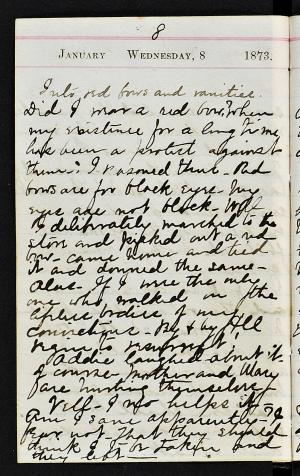 8
January Wednesday, 8 1873.
Into red bows and vanities.
Did I wear a red bow? when
my existence for a long time
has been a protest against
them? I reasoned thus - Red
bows are for black eyes - my
eyes are not black - Well
I deliberately marched to the
store and picked out a red
bow - came home and tied
it and donned the same -
Alas - If I were the only
one who walked on the
lifeless bodies of my
convictions - by & by All
begin to resurrect.
Addie laughed about it
of course - Mother and Mary
are hunting themselves
Well - I
am I sane apparently
That they should
think and
they